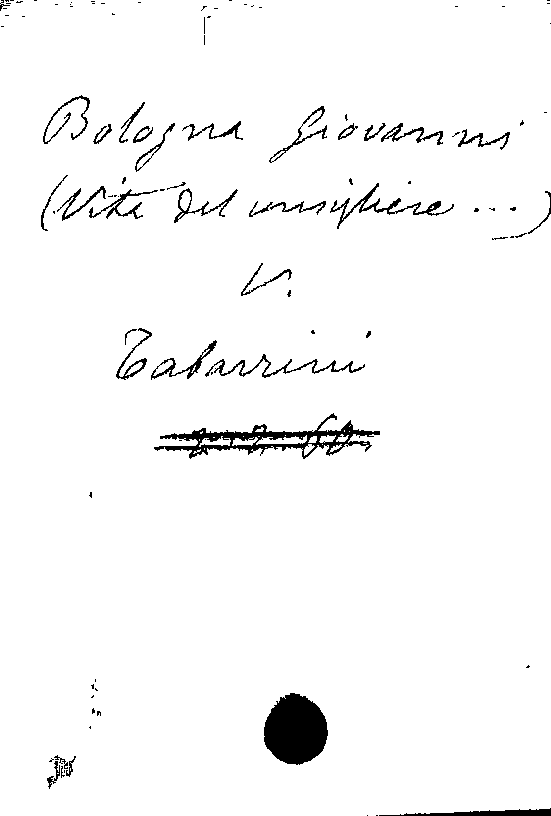 Bologna Giovanni
(Vita del consigliere ...)
V.
Tabarrini